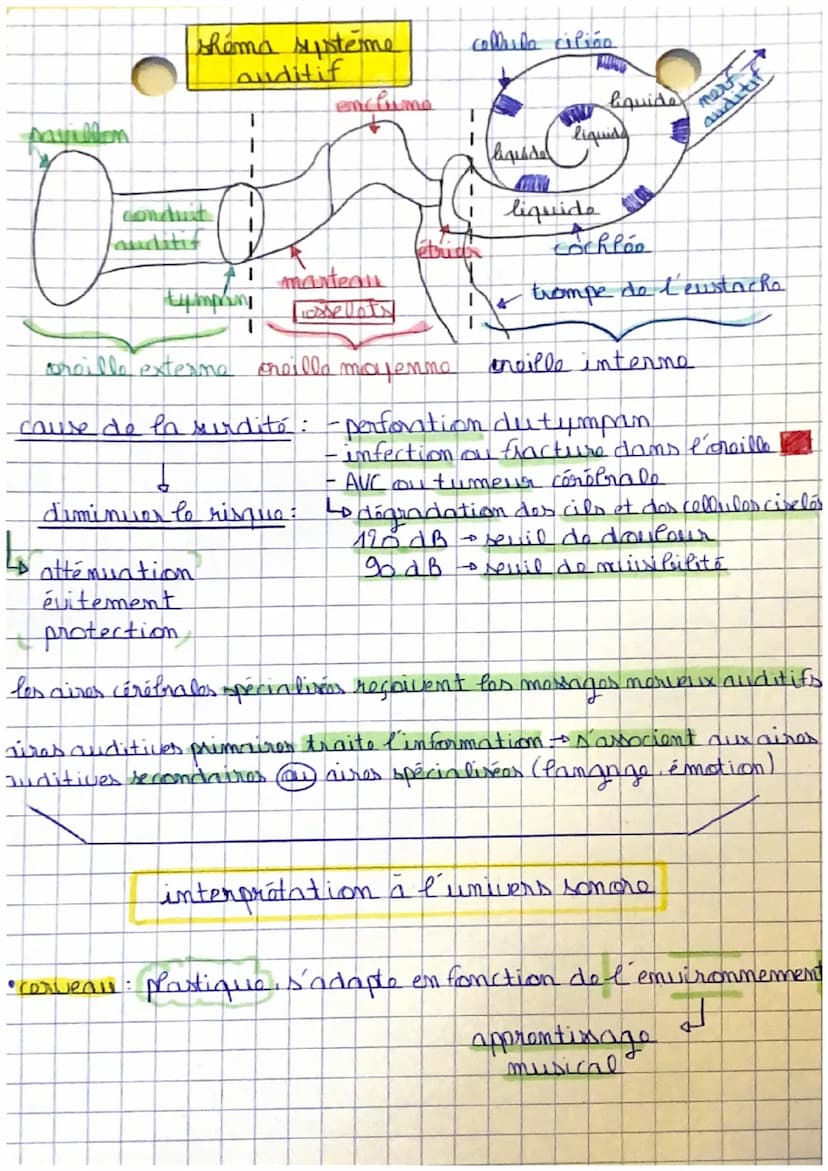 shéma système
auditif
cellule ciliée
nerf
auditif
enclume
pavillon
liquide
liquide
liquide
liquide
conduit
auditif
étrier
cochlée
tympan
marteau
osselets
trompe de l'eustache
oreille externe
oreille moyenne
oreille interne
cause de la surdité : - perforation du tympan
- infection ou fracture dans l'oreille
- AVC ou tumeur cérébrale
diminuer le risque : ↳ dégradation des cils et des cellules ciselés
120 dB → seuil de douleur
90 dB → seuil de nuisibilité
↳ atténuation
évitement
protection
les aires cérébrales spécialisées reçoivent les messages nerveux auditifs
aires auditives primaires traite l'information → s'associent aux aires
auditives secondaires ou aires spécialisées (langage, émotion)
interprétation à l'univers sonore
• cerveau : plastique, s'adapte en fonction de l'environnement
apprentissage
musical